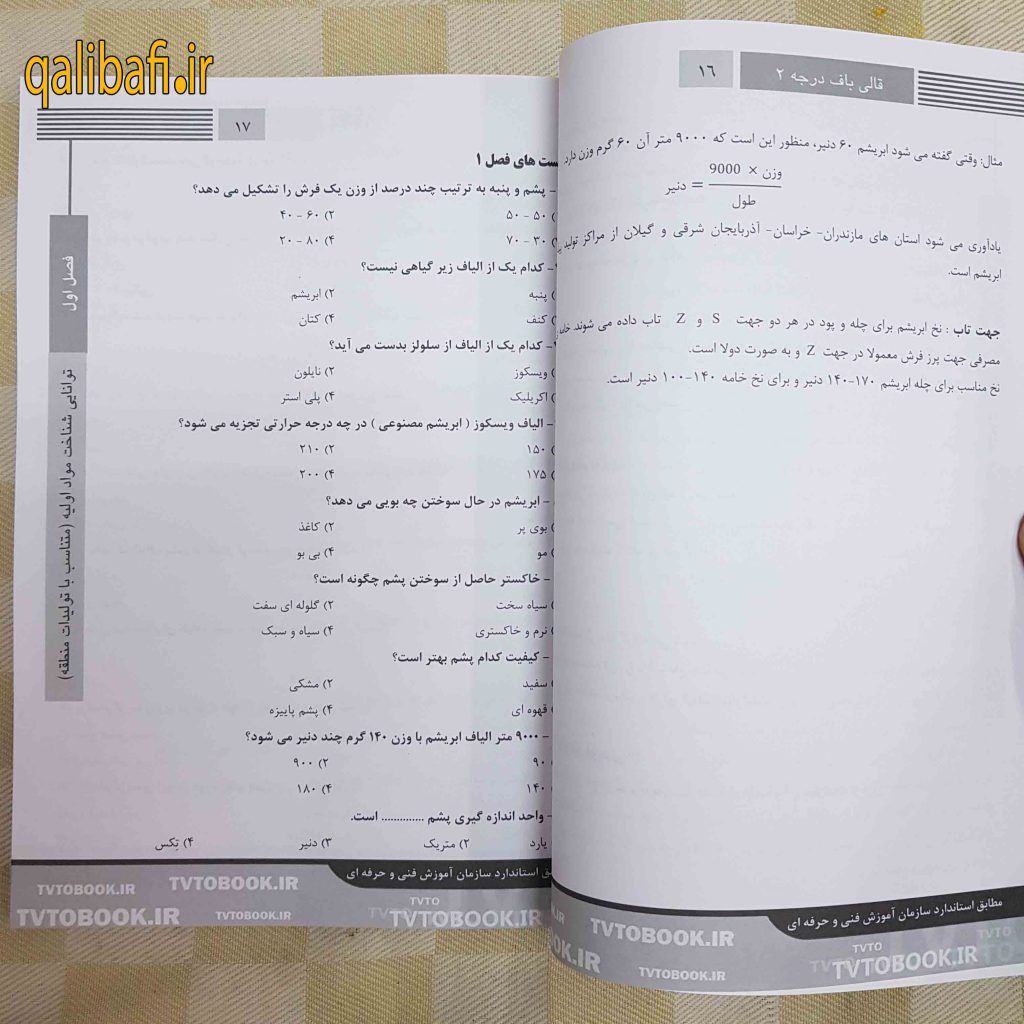 qalibafi.ir
قالی باف درجه ۲
۱۶
مثال: وقتی گفته می شود ابریشم ۶۰ دنیر، منظور این است که ۹۰۰۰ متر آن ۶۰ گرم وزن دارد.
دنیر = وزن × 9000 / طول
یادآوری می شود استان های مازندران- خراسان- آذربایجان شرقی و گیلان از مراکز تولید
ابریشم است.
جهت تاب : نخ ابریشم برای چله و پود در هر دو جهت S و Z تاب داده می شوند.
مصرفی جهت پرز فرش معمولا در جهت Z و به صورت دولا است.
نخ مناسب برای چله ابریشم ۱۷۰-۱۴۰ دنیر و برای نخ خامه ۱۴۰-۱۰۰ دنیر است.
مطابق استاندارد سازمان آموزش فنی و حرفه ای
TVTOBOOK.IR
TVTO
TVTOBOOK.IR
TVTOBOOK.IR
TVTO
۱۷
های فصل ۱
- پشم و پنبه به ترتیب چند درصد از وزن یک فرش را تشکیل می دهد؟
) ۵۰ - ۵۰ ۲) ۶۰ - ۴۰
) ۳۰ - ۷۰ ۴) ۸۰ - ۲۰
- کدام یک از الیاف زیر گیاهی نیست؟
) پنبه ۲) ابریشم
) کنف ۴) کتان
- کدام یک از الیاف از سلولز بدست می آید؟
) ویسکوز ۲) نایلون
) اکریلیک ۴) پلی استر
- الیاف ویسکوز ( ابریشم مصنوعی ) در چه درجه حرارتی تجزیه می شود؟
) ۱۵۰ ۲) ۲۱۰
) ۱۷۵ ۴) ۲۰۰
- ابریشم در حال سوختن چه بویی می دهد؟
) بوی پر ۲) کاغذ
) مو ۴) بی بو
- خاکستر حاصل از سوختن پشم چگونه است؟
) سیاه سخت ۲) گلوله ای سفت
) نرم و خاکستری ۴) سیاه و سبک
- کیفیت کدام پشم بهتر است؟
) سفید ۲) مشکی
) قهوه ای ۴) پشم پاییزه
- ۹۰۰۰ متر الیاف ابریشم با وزن ۱۴۰ گرم چند دنیر می شود؟
) ۹۰ ۲) ۹۰۰
) ۱۴۰ ۴) ۱۸۰
- واحد اندازه گیری پشم .............. است.
) یارد ۲) متریک ۳) دنیر ۴) تِکس
فصل اول
توانایی شناخت مواد اولیه (متناسب با تولیدات منطقه)
استاندارد سازمان آموزش فنی و حرفه ای
TVTOBOOK.IR
TVTOBOOK.IR
TVTO
TVTOBOOK.IR
TVTOBOOK.IR
TVTOBOOK.IR